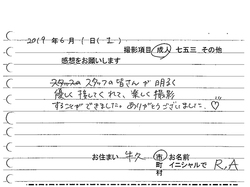 2019年6月1日(土)
撮影項目 成人 七五三 その他
感想をお願いします
スタッフの皆さんが明るく
優しく接してくれて、楽しく撮影
することができました。ありがとうございました。♡
お住まい 牛久 市 町 村 お名前 イニシャルで R,A